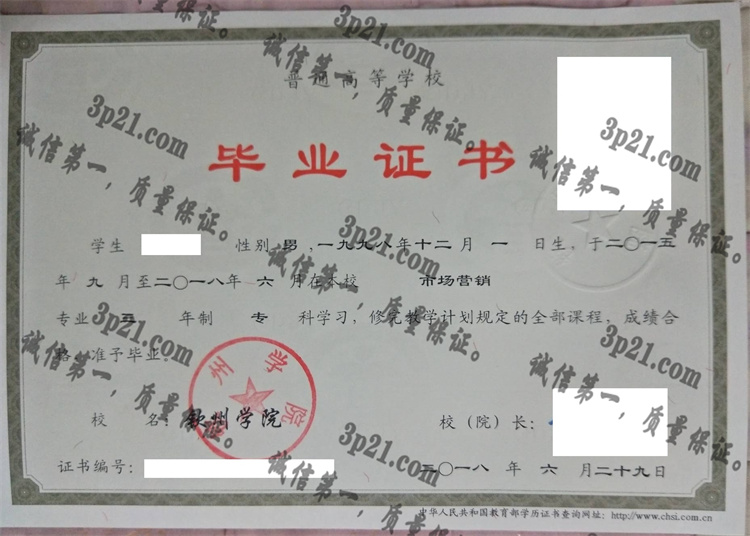 普通高等学校
毕业证书
学生 性别 男 ,一九九八年十二月 一 日生,于二〇一五
年 九 月至二〇一八年 六 月在本校 市场营销
专业 三 年制 专 科学习,修完教学计划规定的全部课程,成绩合
格,准予毕业。
校 名: 钦州学院
校(院)长:
证书编号:
二〇一八 年 六 月二十九日
中华人民共和国教育部学历证书查询网址: http://www.chsi.com.cn
州学院
3p21.com
诚信第一,质量保证。
3p21.com
诚信第一,质量保证。
3p21.com
诚信第一,质量保证。
3p21.com
诚信第一,质量保证。
3p21.com
诚信第一,质量保证。
3p21.com
诚信第一,质量保证。
3p21.com
诚信第一,质量保证。
3p21.com
诚信第一,质量保证。